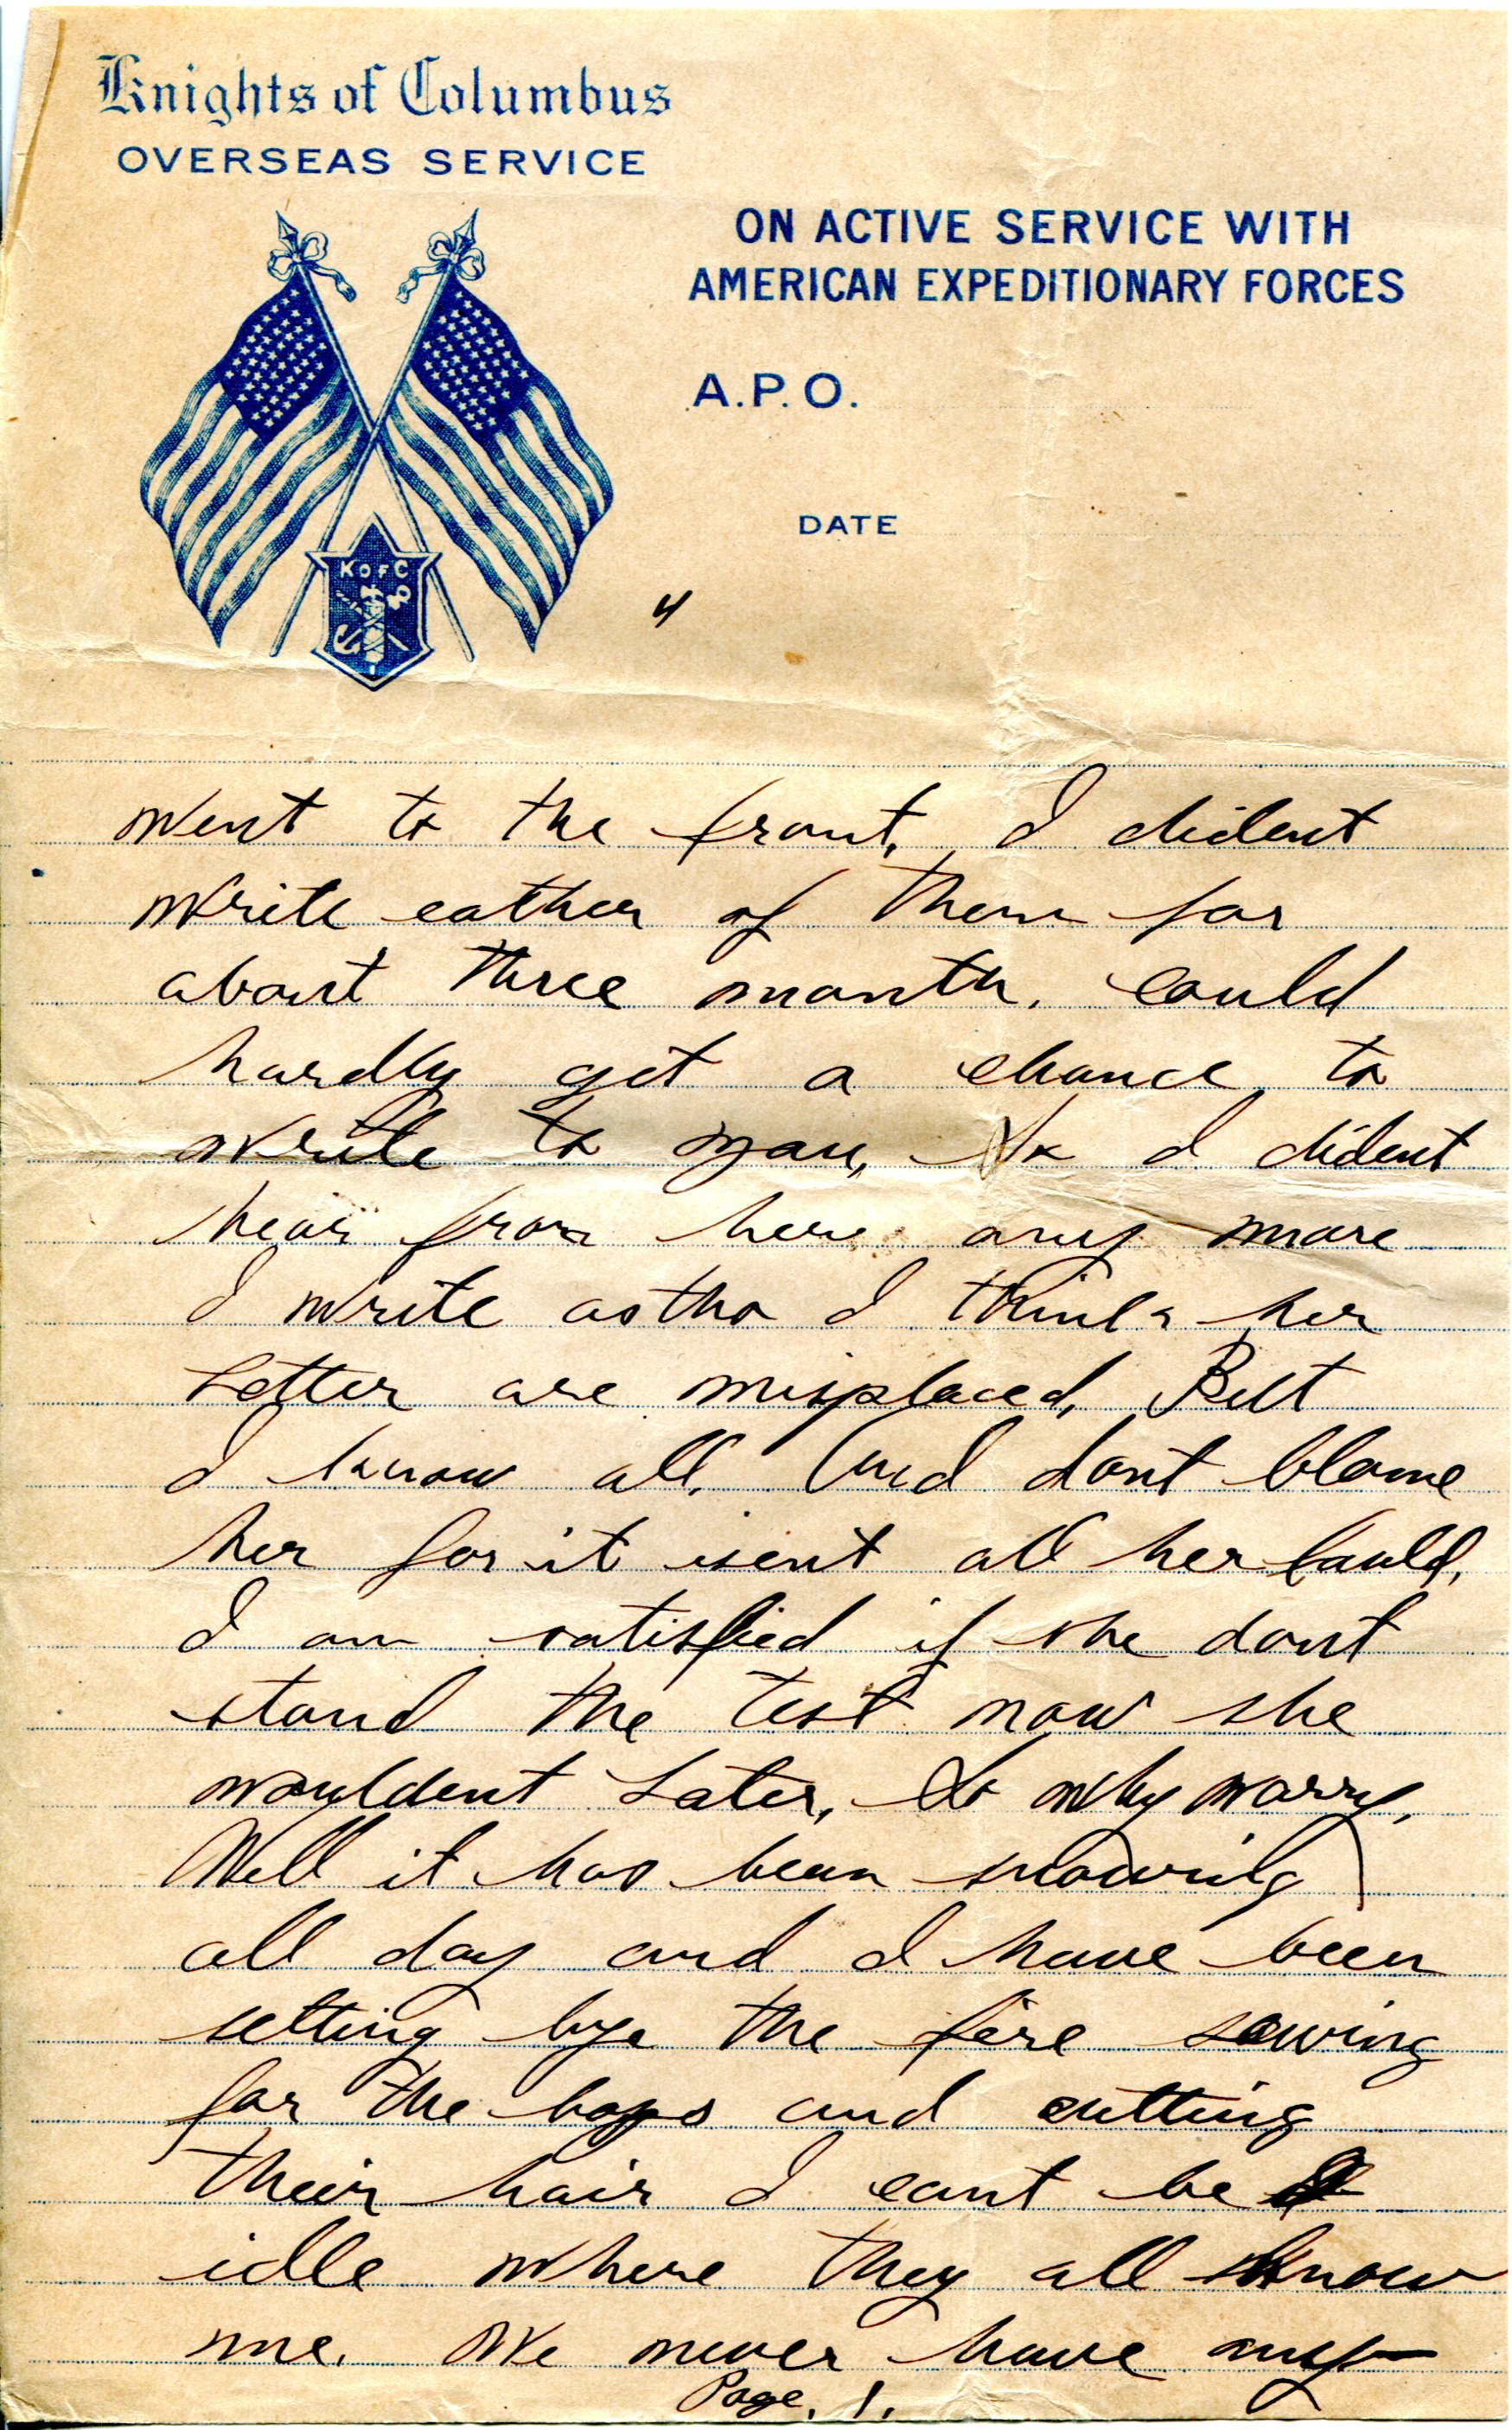 Knights of Columbus
OVERSEAS SERVICE
ON ACTIVE SERVICE WITH
AMERICAN EXPEDITIONARY FORCES
A.P.O.
DATE
K OF C
4
went to the front, I dident
write eather of them for
about three month. Could
hardly get a chance to
write to you, So I dident
hear from her any more
I write as tho I think her
Letter are misplaced, But
I know all. And dont blame
her for it isent all her fauld,
I am satisfied if she dont
stand the test now she
wouldent Later, So why worry,
Well it has been snowing
all day and I have been
setting bye the fire sewing
for the boys and cutting
their hair I cant be
idle where they all know
me. We never have any
Page. 1.